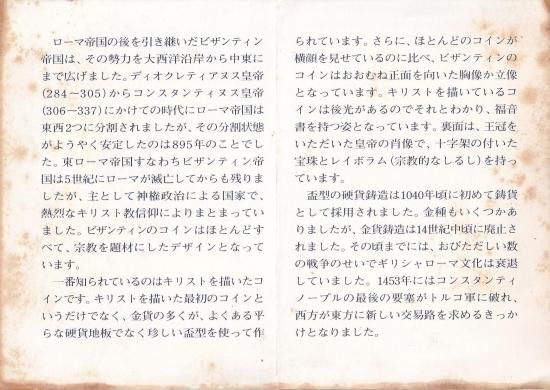 ローマ帝国の後を引き継いだビザンティン
帝国は、その勢力を大西洋沿岸から中東に
まで広げました。ディオクレティアヌス皇帝
(284〜305)からコンスタンティヌス皇帝
(306〜337)にかけての時代にローマ帝国は
東西2つに分割されましたが、その分割状態
がようやく安定したのは895年のことでし
た。東ローマ帝国すなわちビザンティン帝
国は5世紀にローマが滅亡してからも残りま
したが、主として神権政治による国家で、
熱烈なキリスト教信仰によりまとまってい
ました。ビザンティンのコインはほとんどす
べて、宗教を題材にしたデザインとなって
います。
一番知られているのはキリストを描いたコ
インです。キリストを描いた最初のコインと
いうだけでなく、金貨の多くが、よくある平
らな硬貨地板でなく珍しい盃型を使って作
られています。さらに、ほとんどのコインが
横顔を見せているのに比べ、ビザンティンの
コインはおおむね正面を向いた胸像か立像
となっています。キリストを描いているコイ
ンは後光があるのでそれとわかり、福音
書を持つ姿となっています。裏面は、王冠を
いただいた皇帝の肖像で、十字架の付いた
宝珠とレイボラム(宗教的なしるし)を持っ
ています。
盃型の硬貨鋳造は1040年頃に初めて鋳貨
として採用されました。金種もいくつかあ
りましたが、金貨鋳造は14世紀中頃に廃止さ
れました。その頃までには、おびただしい数
の戦争のせいでギリシャローマ文化は衰退
していました。1453年にはコンスタンティ
ノープルの最後の要塞がトルコ軍に破れ、
西方が東方に新しい交易路を求めるきっか
けとなりました。